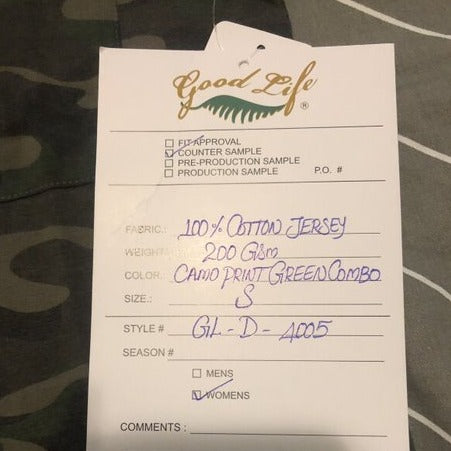 Good Life ®
FIT APPROVAL
COUNTER SAMPLE
PRE-PRODUCTION SAMPLE
PRODUCTION SAMPLE P.O. #
FABRIC.: 100% COTTON JERSEY
WEIGHT: 200 GSm
COLOR: CAMO PRINT GREEN COMBO
SIZE.: S
STYLE # GL-D-4005
SEASON #
MENS
WOMENS
COMMENTS :